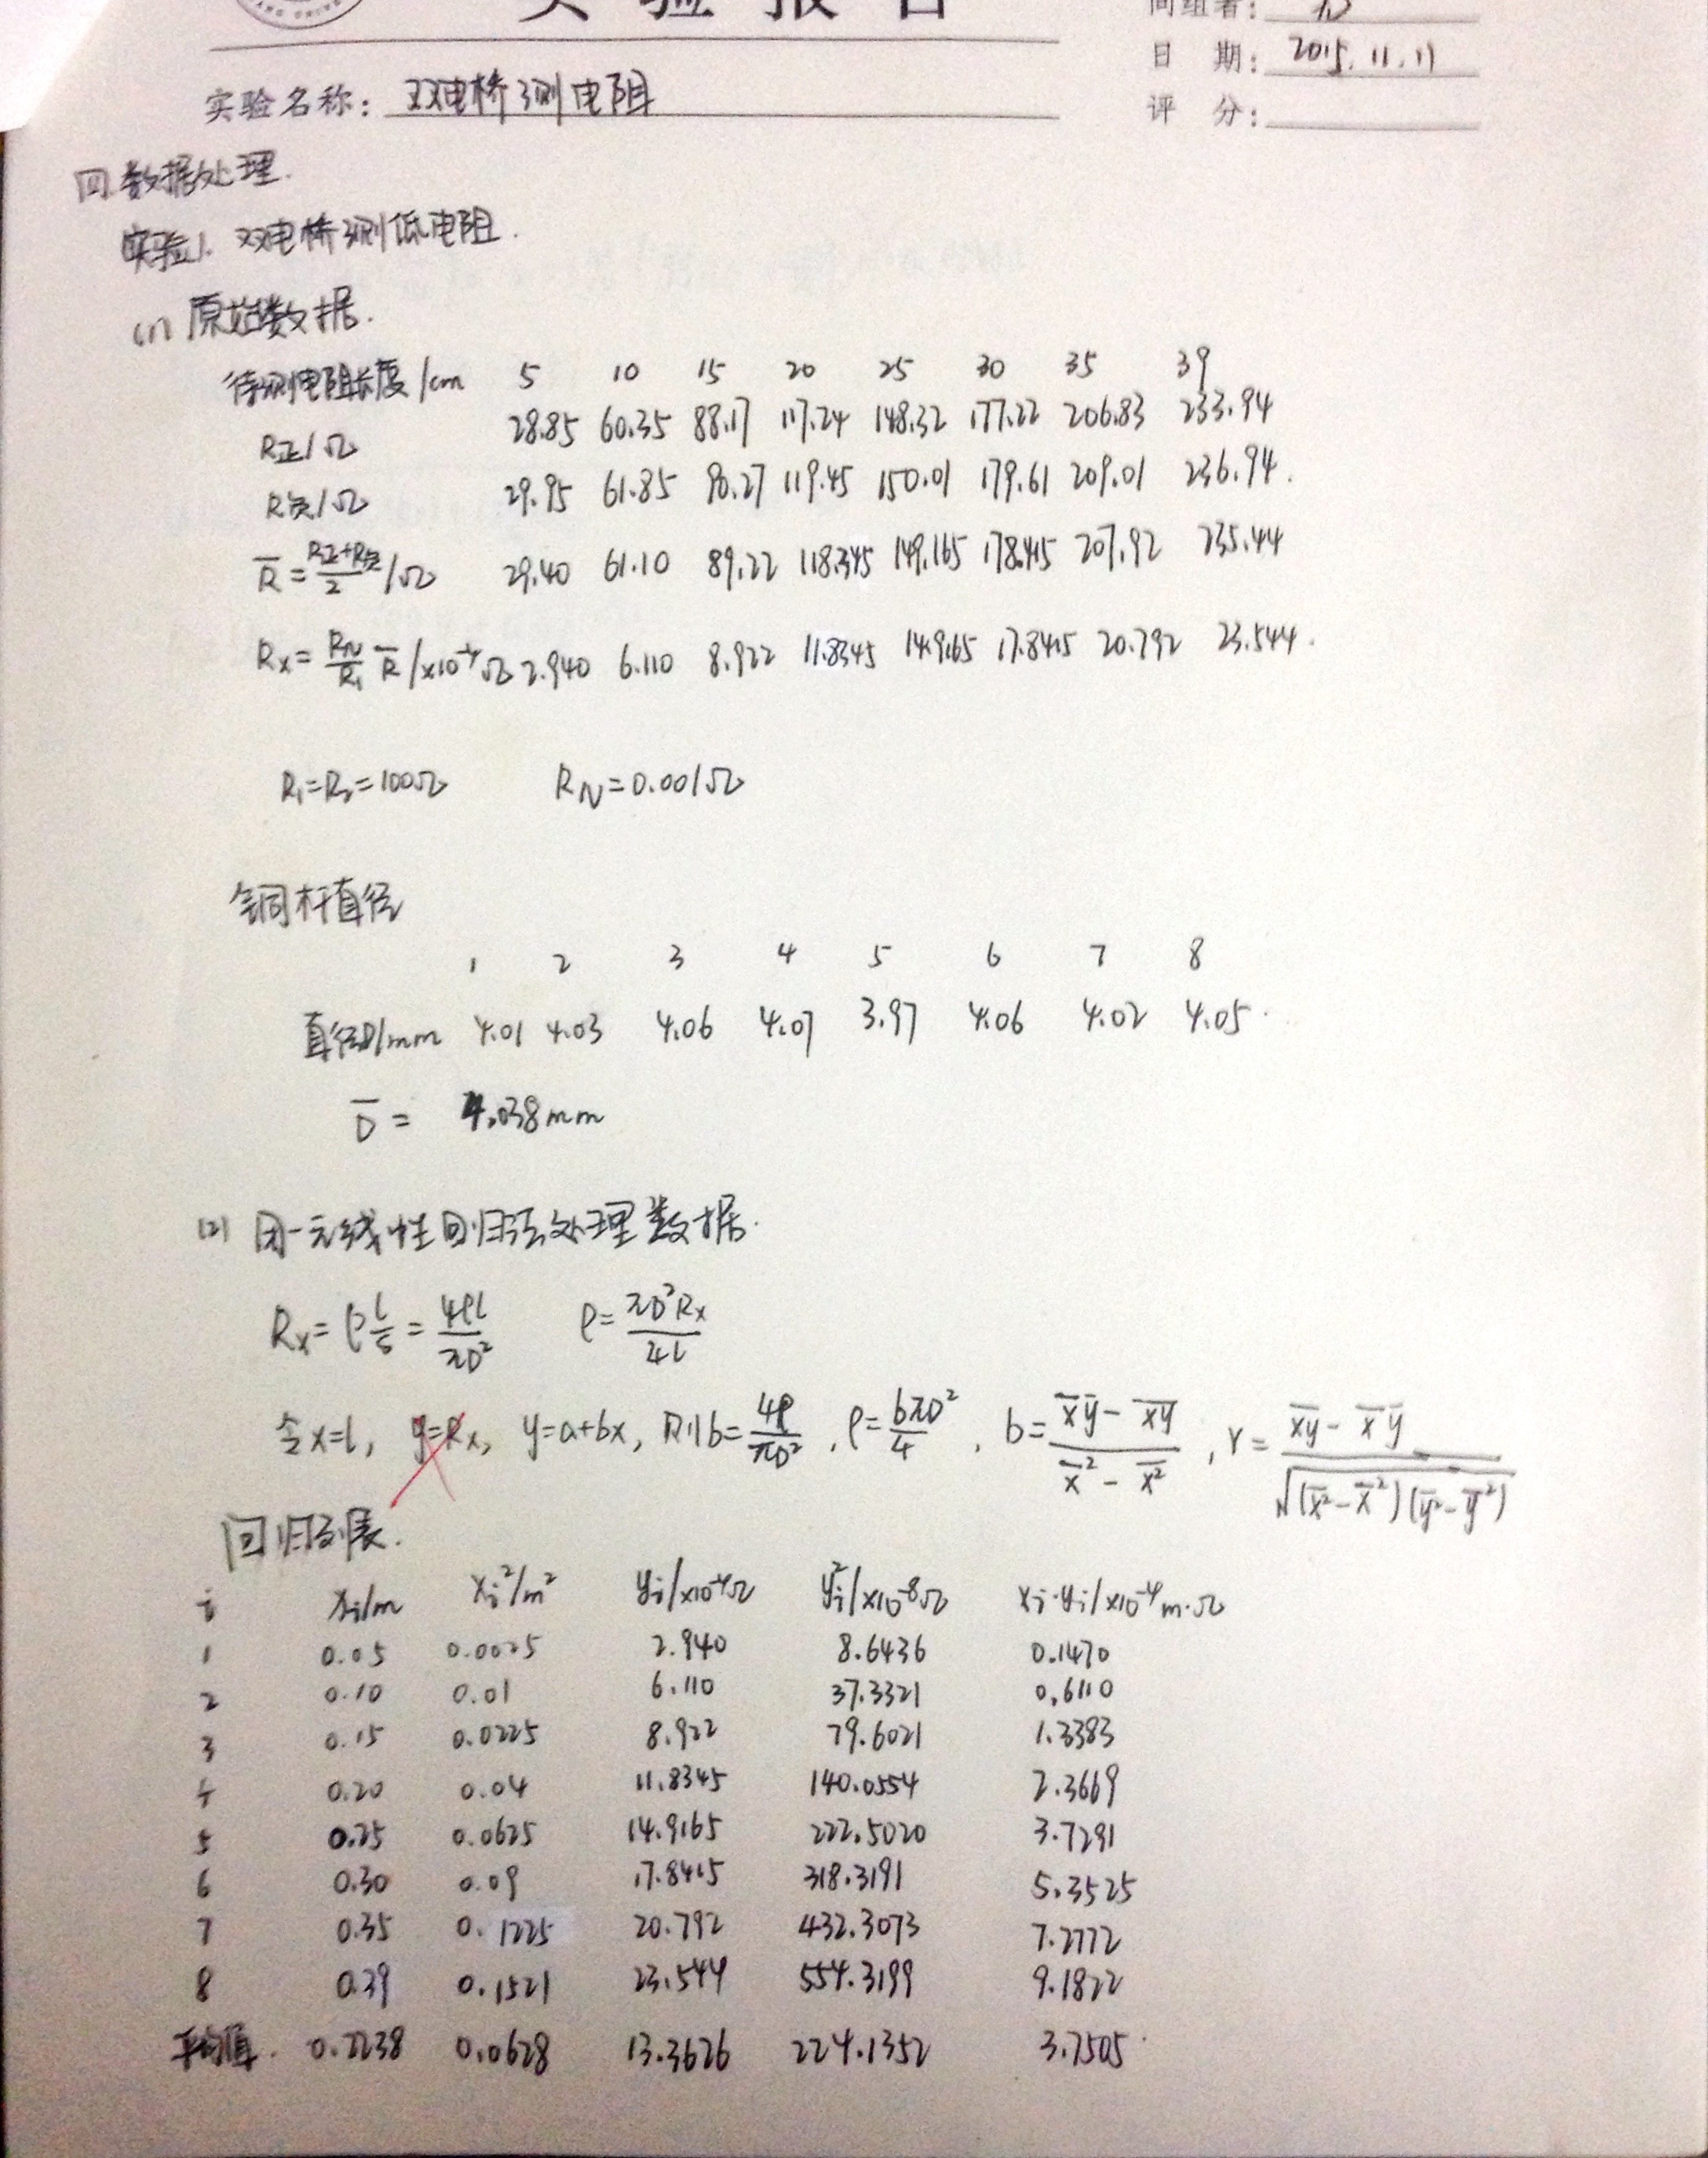 实验报告
同组者:
日 期: 2015.11.11
实验名称: 双电桥测电阻
评 分:
四.数据处理.
实验1. 双电桥测低电阻.
(1) 原始数据.
待测电阻长度/cm 5 10 15 20 25 30 35 39
R正/Ω 28.85 60.35 88.17 117.24 148.32 177.22 206.83 233.94
R负/Ω 29.95 61.85 90.27 119.45 150.01 179.61 209.01 236.94.
R̄=(R正+R负)/2 /Ω 29.40 61.10 89.22 118.345 149.165 178.415 207.92 235.44
Rx=(RN/R1)R̄/×10⁻⁴Ω 2.940 6.110 8.922 11.8345 14.9165 17.8415 20.792 23.544.
R₁=R₂=100Ω RN=0.001Ω
铜杆直径
1 2 3 4 5 6 7 8
直径D/mm 4.01 4.03 4.06 4.07 3.97 4.06 4.02 4.05.
D̄= 4.038mm
(2) 用一元线性回归法处理数据.
Rx=ρ l/S = 4ρl/πD² ρ=πD²Rx/4l
令x=l, y=Rx, y=a+bx, 则b=4ρ/πD², ρ=bπD²/4, b=(x̄ȳ-x̄y̅)/(x̄²-x̅²), r=(x̅y̅-x̄ȳ)/√((x̅²-x̄²)(y̅²-ȳ²))
回归列表.
i xi/m xi²/m² yi/×10⁻⁴Ω yi²/×10⁻⁸Ω xi·yi/×10⁻⁴m·Ω
1 0.05 0.0025 2.940 8.6436 0.1470
2 0.10 0.01 6.110 37.3321 0.6110
3 0.15 0.0225 8.922 79.6021 1.3383
4 0.20 0.04 11.8345 140.0554 2.3669
5 0.25 0.0625 14.9165 222.5020 3.7291
6 0.30 0.09 17.8415 318.3191 5.3525
7 0.35 0.1225 20.792 432.3073 7.2772
8 0.39 0.1521 23.544 554.3199 9.1822
平均值. 0.2238 0.0628 13.3626 224.1352 3.7505.